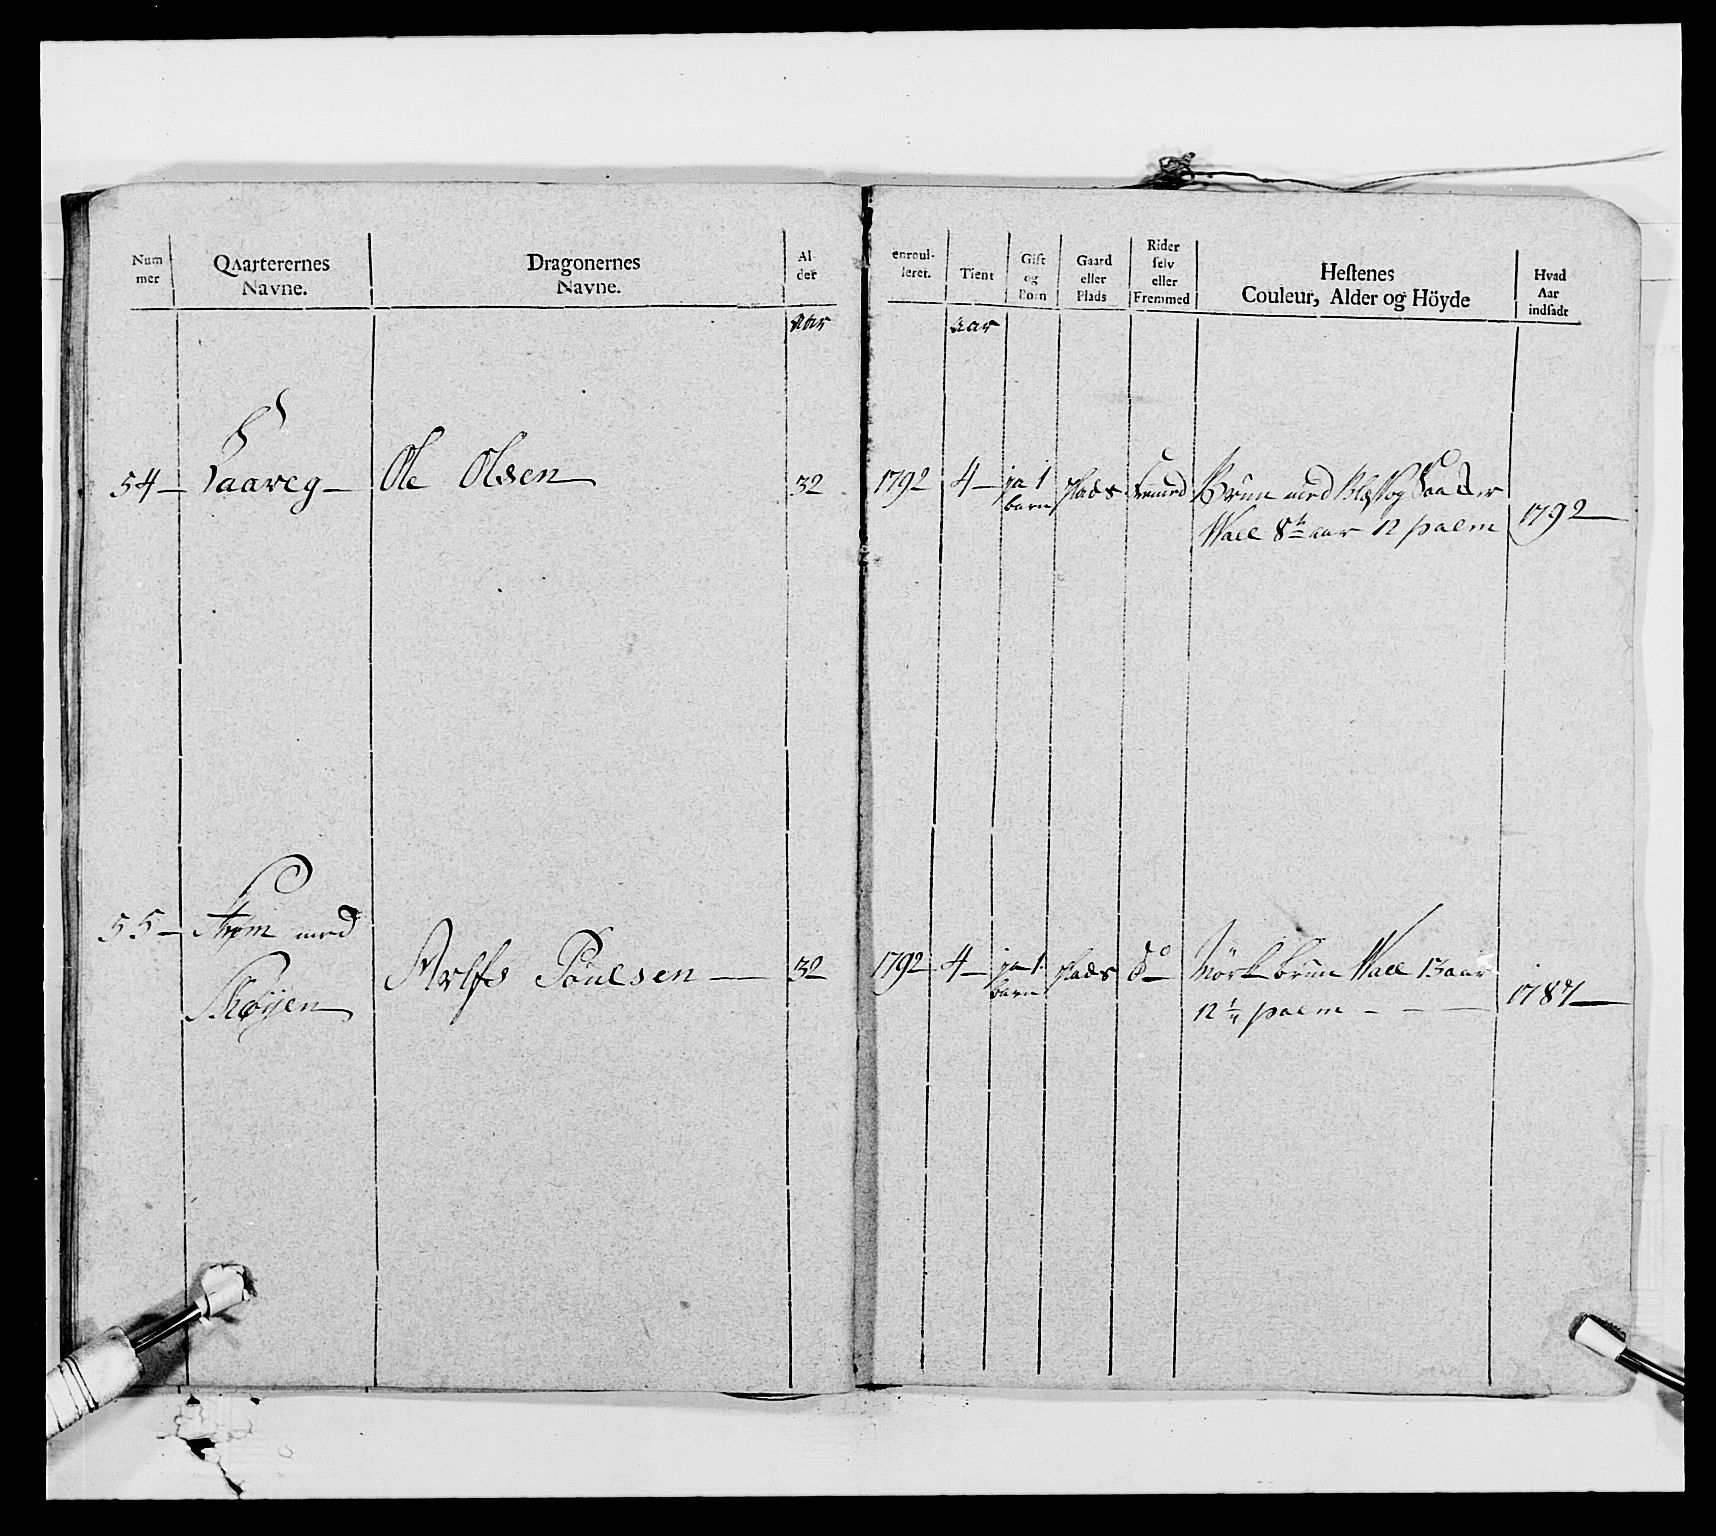 Num
mer
Qvarterernes
Navne.
Dragonernes
Navne.
Al
der
enroul-
leret.
Tient
Gift
og
Born
Gaard
eller
Plads
Rider
selv
eller
Fremmed
Hestenes
Couleur, Alder og Höyde
Hvad
Aar
indsadt
aar
aar
54 —
Ole Olsen
32
1792
4 —
ja 1
barn
plads
fremed
Brun med Blis og
Wall 8te aar 12 palm
1792
55 —
Strøm med
Poulsen
32
1792
4 —
ja 1
barn
plads
do
Mörk brun Wall 13 aar
12 palm
1787